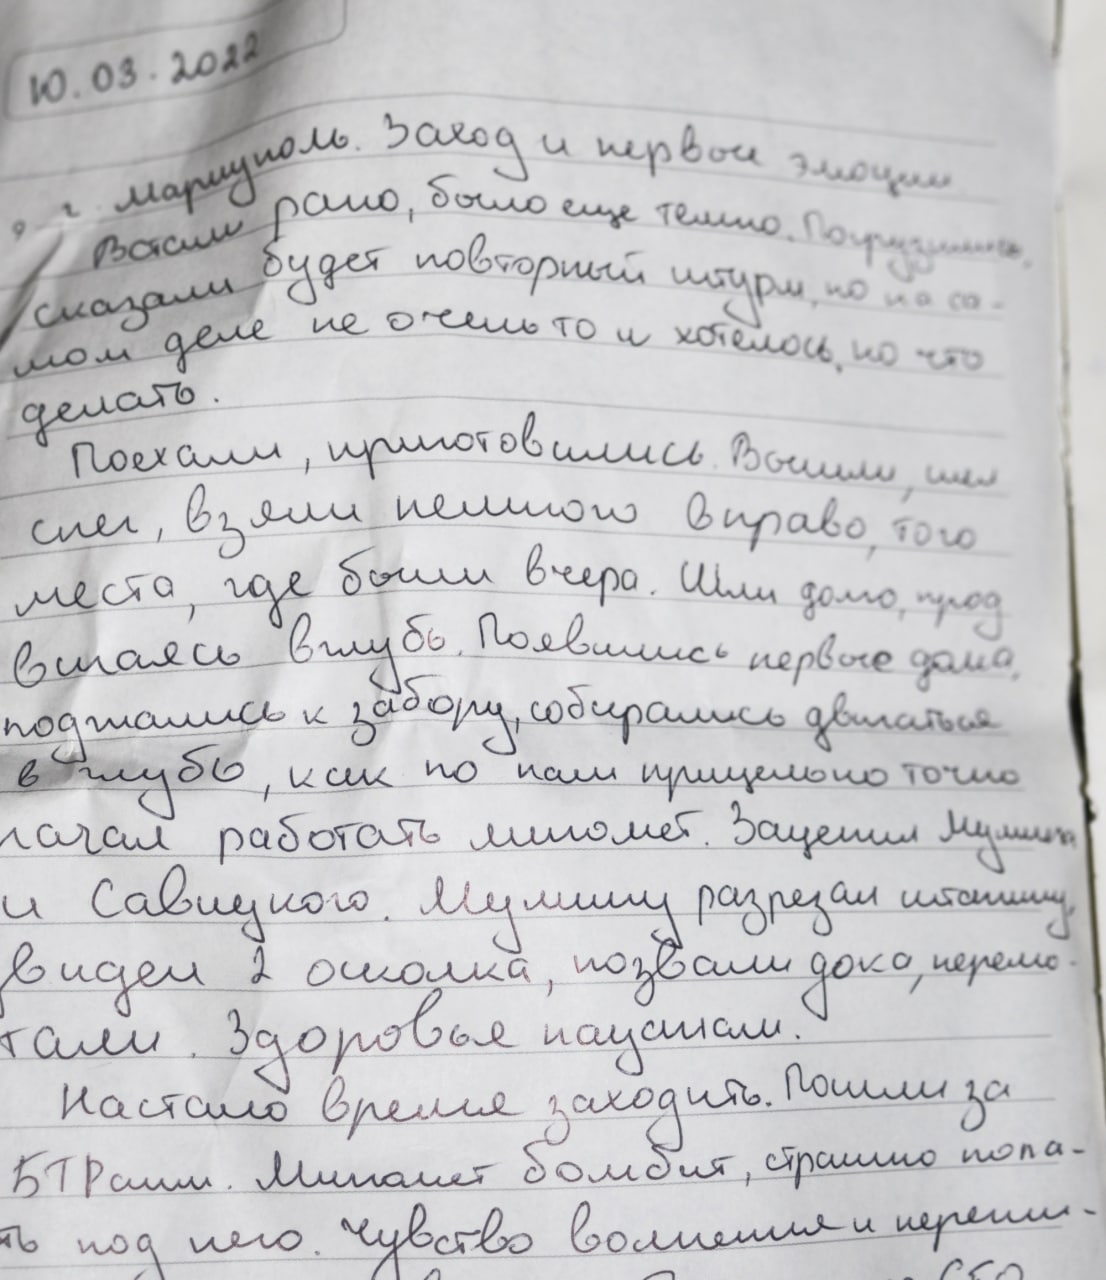 10.03.2022
г. Мариуполь. Заход и первые эмоции
Встали рано, было еще темно. Погрузились,
сказали будет повторный штурм, но на са-
мом деле не очень то и хотелось, но что
делать.
Поехали, приготовились. Вышли, шел
снег, взяли немного вправо, того
места, где были вчера. Шли долго, прод
вигаясь вглубь. Появились первые дома,
поджались к забору, собирались двигаться
в глубь, как по нам прицельно точно
начал работать миномет. Зацепил
и Савицкого. Мумину разрезал штанину,
видел 2 осколка, позвали дока, перемо-
тали. Здоровья пацанам.
Настало время заходить. Пошли за
БТРами. Миномет бомбит, страшно попа-
ть под него. Чувство волнения и